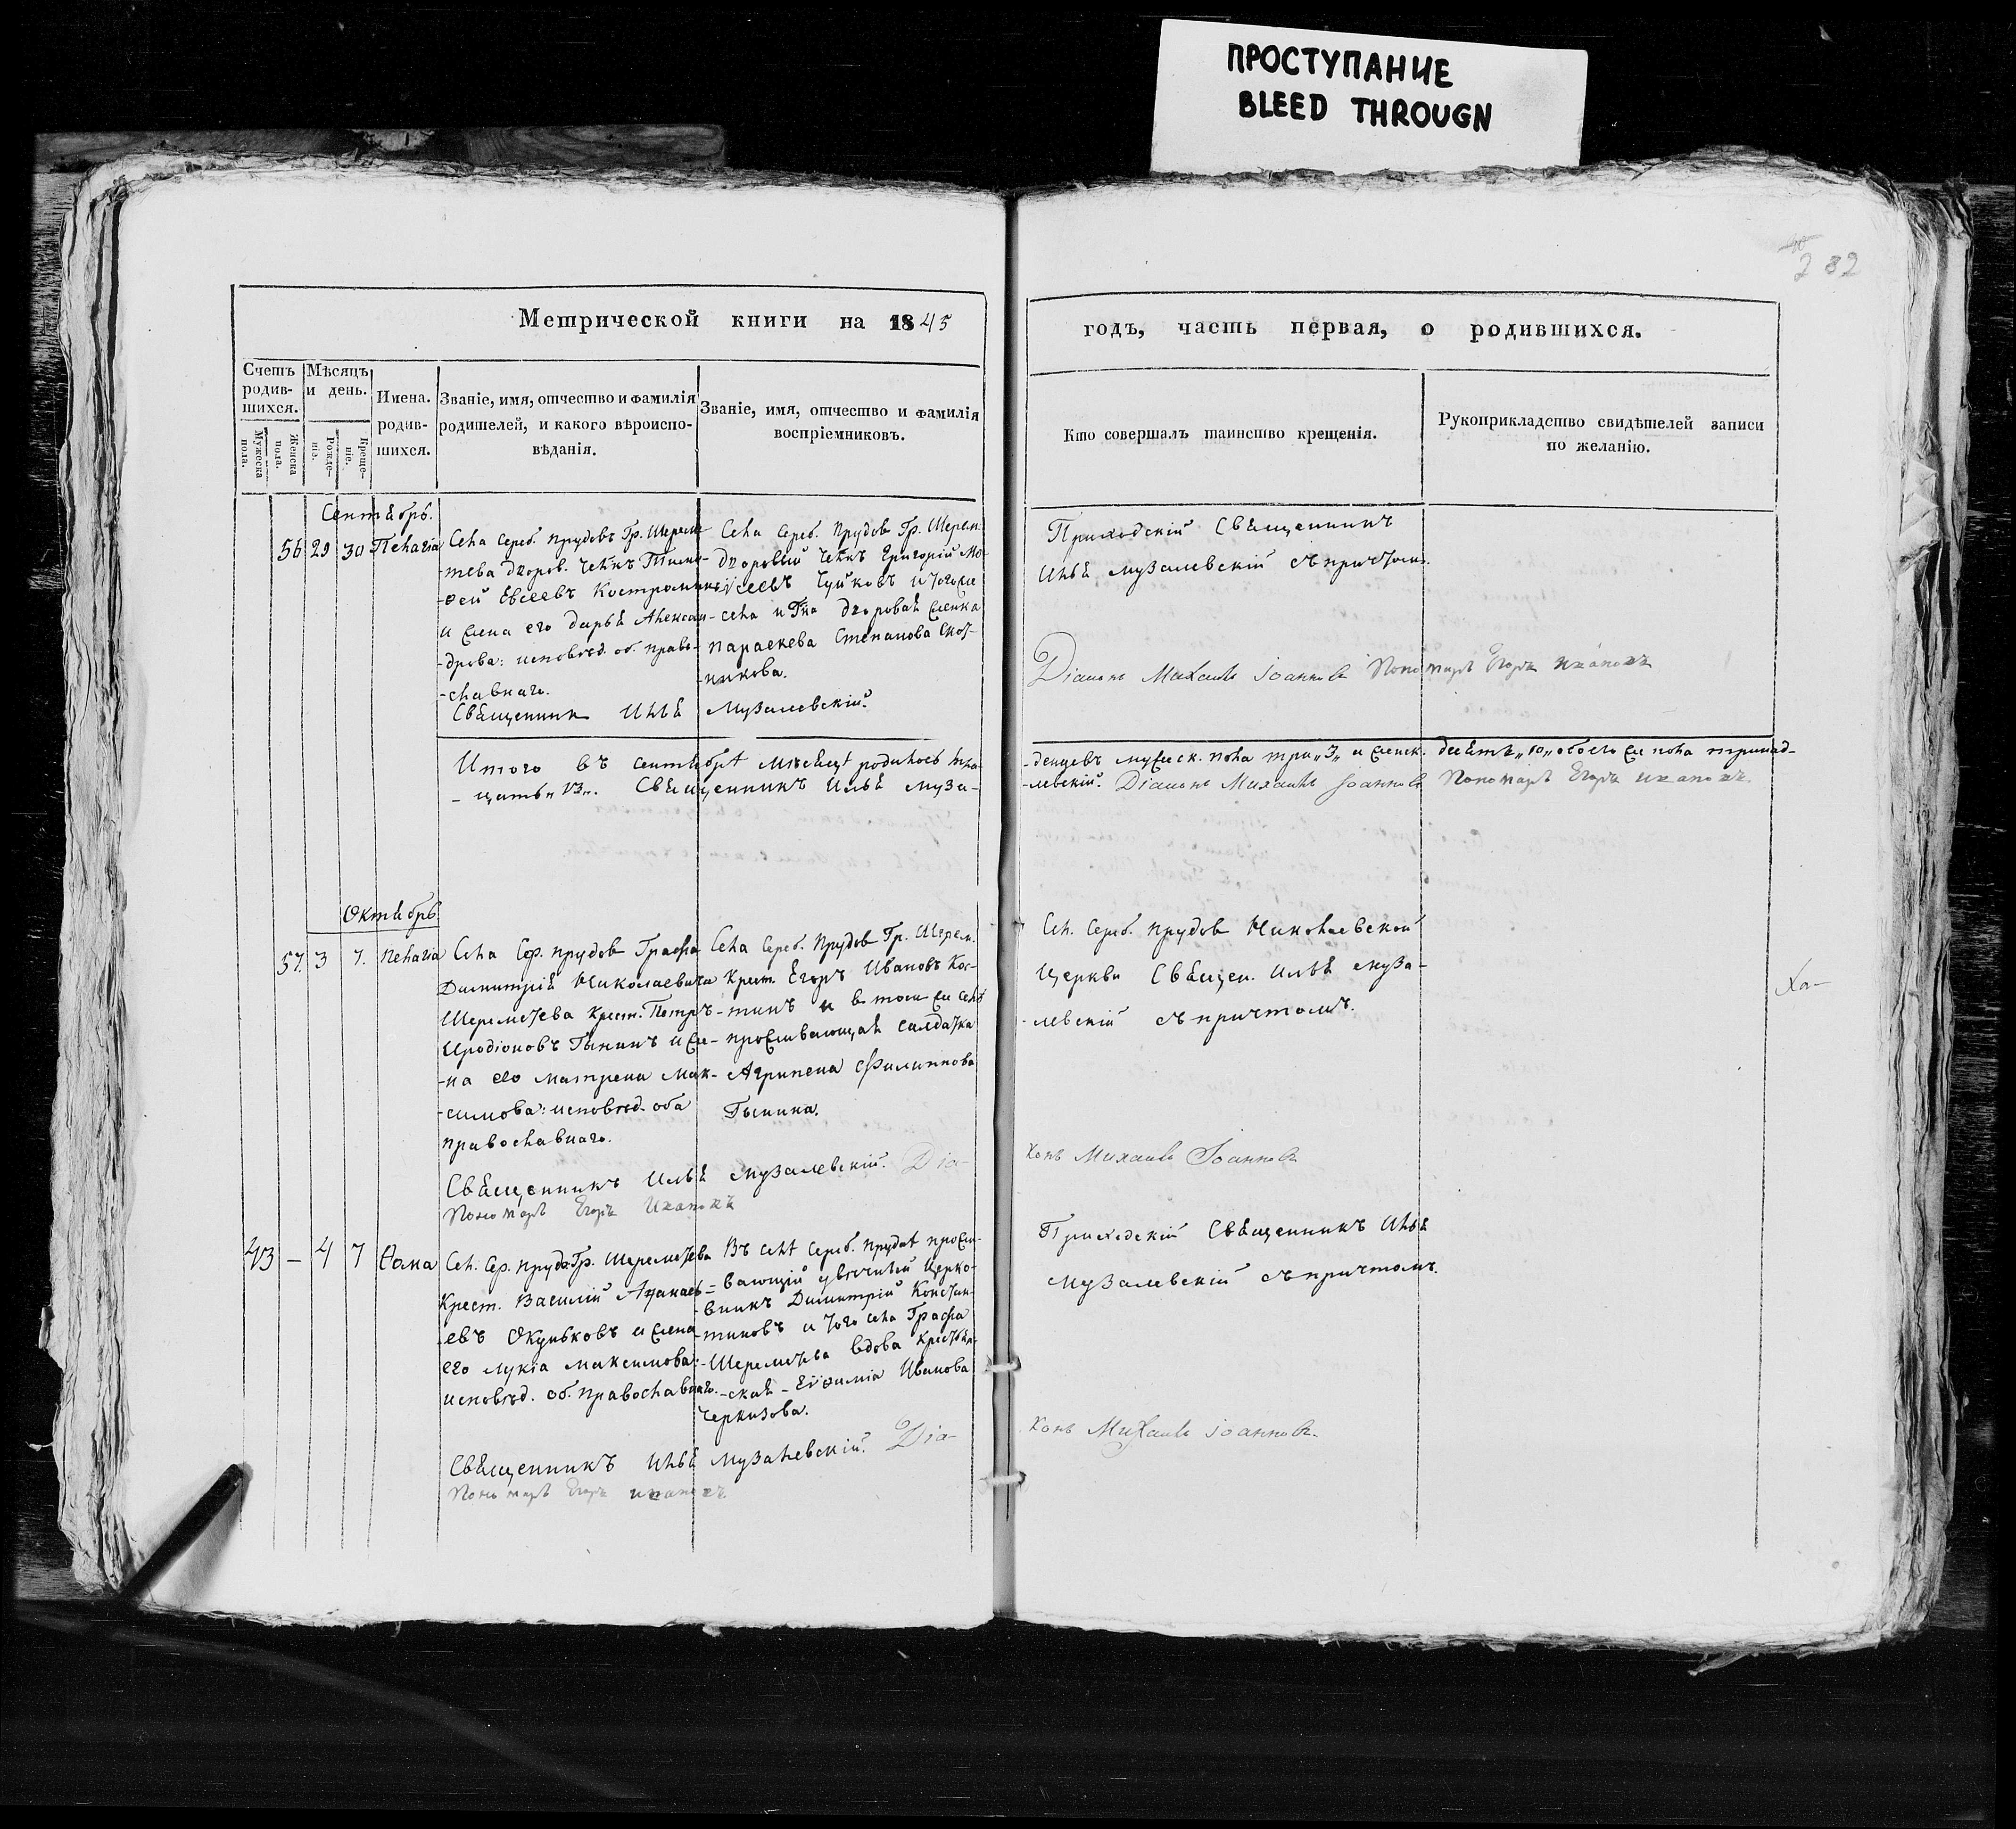 ПРОСТУПАНИЕ
BLEED THROUGN
282
Метрической книги на 1845
годъ, часть первая, о родившихся.
Счетъ родив-шихся.
Мужеска пола.
Женска пола.
Мѣсяцъ и день.
Рожде-нія.
Креще-ніе.
Имена. родив-шихся.
Званіе, имя, отчество и фамилія
родителей, и какого вѣроиспо-
вѣданія.
Званіе, имя, отчество и фамилія
воспріемниковъ.
Кто совершалъ таинство крещенія.
Рукоприкладство свидѣтелей записи
по желанію.
Сентябрь.
56 29 30 Пелагія
Села Сереб. Прудовъ Гр. Шереме-
-тева дворов. челкъ Тимо-
-ѳей Евсеевъ Костромин
и жена его Дарья Алексан-
-дрова: исповѣд. об. право-
-славнаго.
Священникъ Илья Музалевскій.
Села Сереб. Прудов Гр. Шерем.
дворовый челкъ Григорій Мо-
-исеевъ Чуйковъ и тогоже
села и Гна дворовая женка
Параскева Степанова Скот-
-никова.
Приходскій Священникъ
Илья Музалевскій съ причтомъ.
Діаконъ Михаилъ Іоанновъ Пономарь Егоръ Ивановъ
Итого въ сентябрѣ мѣсяцѣ родилось мла-
-денцевъ мужеск. пола три „3„ и женск. десять „10„ обоего же пола тринад-
-цать „13„. Священникъ Илья Муза-
-левскій. Діаконъ Михаилъ Іоанновъ Пономарь Егоръ Ивановъ.
Октябрь
57. 3 7. Пелагія
Села Сер. Прудов Графа
Димитрія Николаевича
Шереметева Крест. Петръ
Иродіоновъ Гынинъ и же-
-на его Матрена Мак-
-симова: исповѣд. оба
православнаго.
Села Сереб. Прудов Гр. Шерем.
Крест. Егоръ Ивановъ Кос-
-тинъ и в томже селѣ
проживающая салдатка
Агрипена Филиппова
Гынина.
Сел. Сереб. Прудов Николаевской
Церкви Священ. Илья Муза-
-левскій съ причтомъ.
Ха-
Священникъ Илья Музалевскій. Діа-
конъ Михаилъ Іоанновъ
Пономарь Егоръ Ивановъ
43 — 4 7 Ѳома
Сел. Сер. Прудов Гр. Шереметева
Крест. Василій Аѳанась-
-евъ Окуньковъ и жена
его Лукіа Максимова:
исповѣд. об. православнаго.
Въ селѣ Сереб. Прудах прожи-
-вающій увѣчный Церко-
-вникъ Димитрій Констан-
-тиновъ и того села Графа
Шереметева вдова Крестьян-
-ская Евѳимія Иванова
Черкизова.
Приходскій Священникъ Илья
Музалевскій съ причтомъ.
Священникъ Илья Музалевскій. Діа-
конъ Михаилъ Іоанновъ.
Пономарь Егоръ Ивановъ